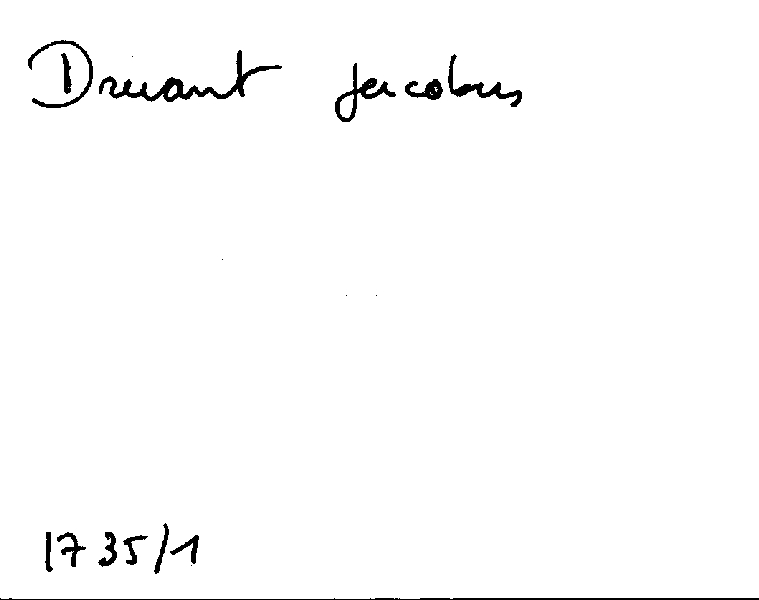 Druant Jacobus
1735/1